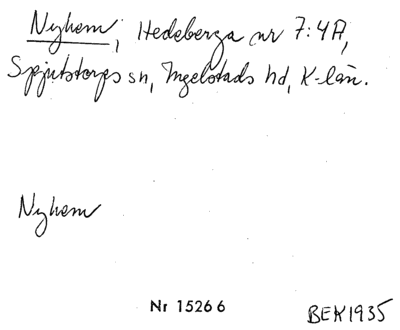 Nyhem, Hedeberga nr 7:4A,
Spjutstorps sn, Ingelstads hd, K-län.
Nyhem
Nr 15266 BEK1935